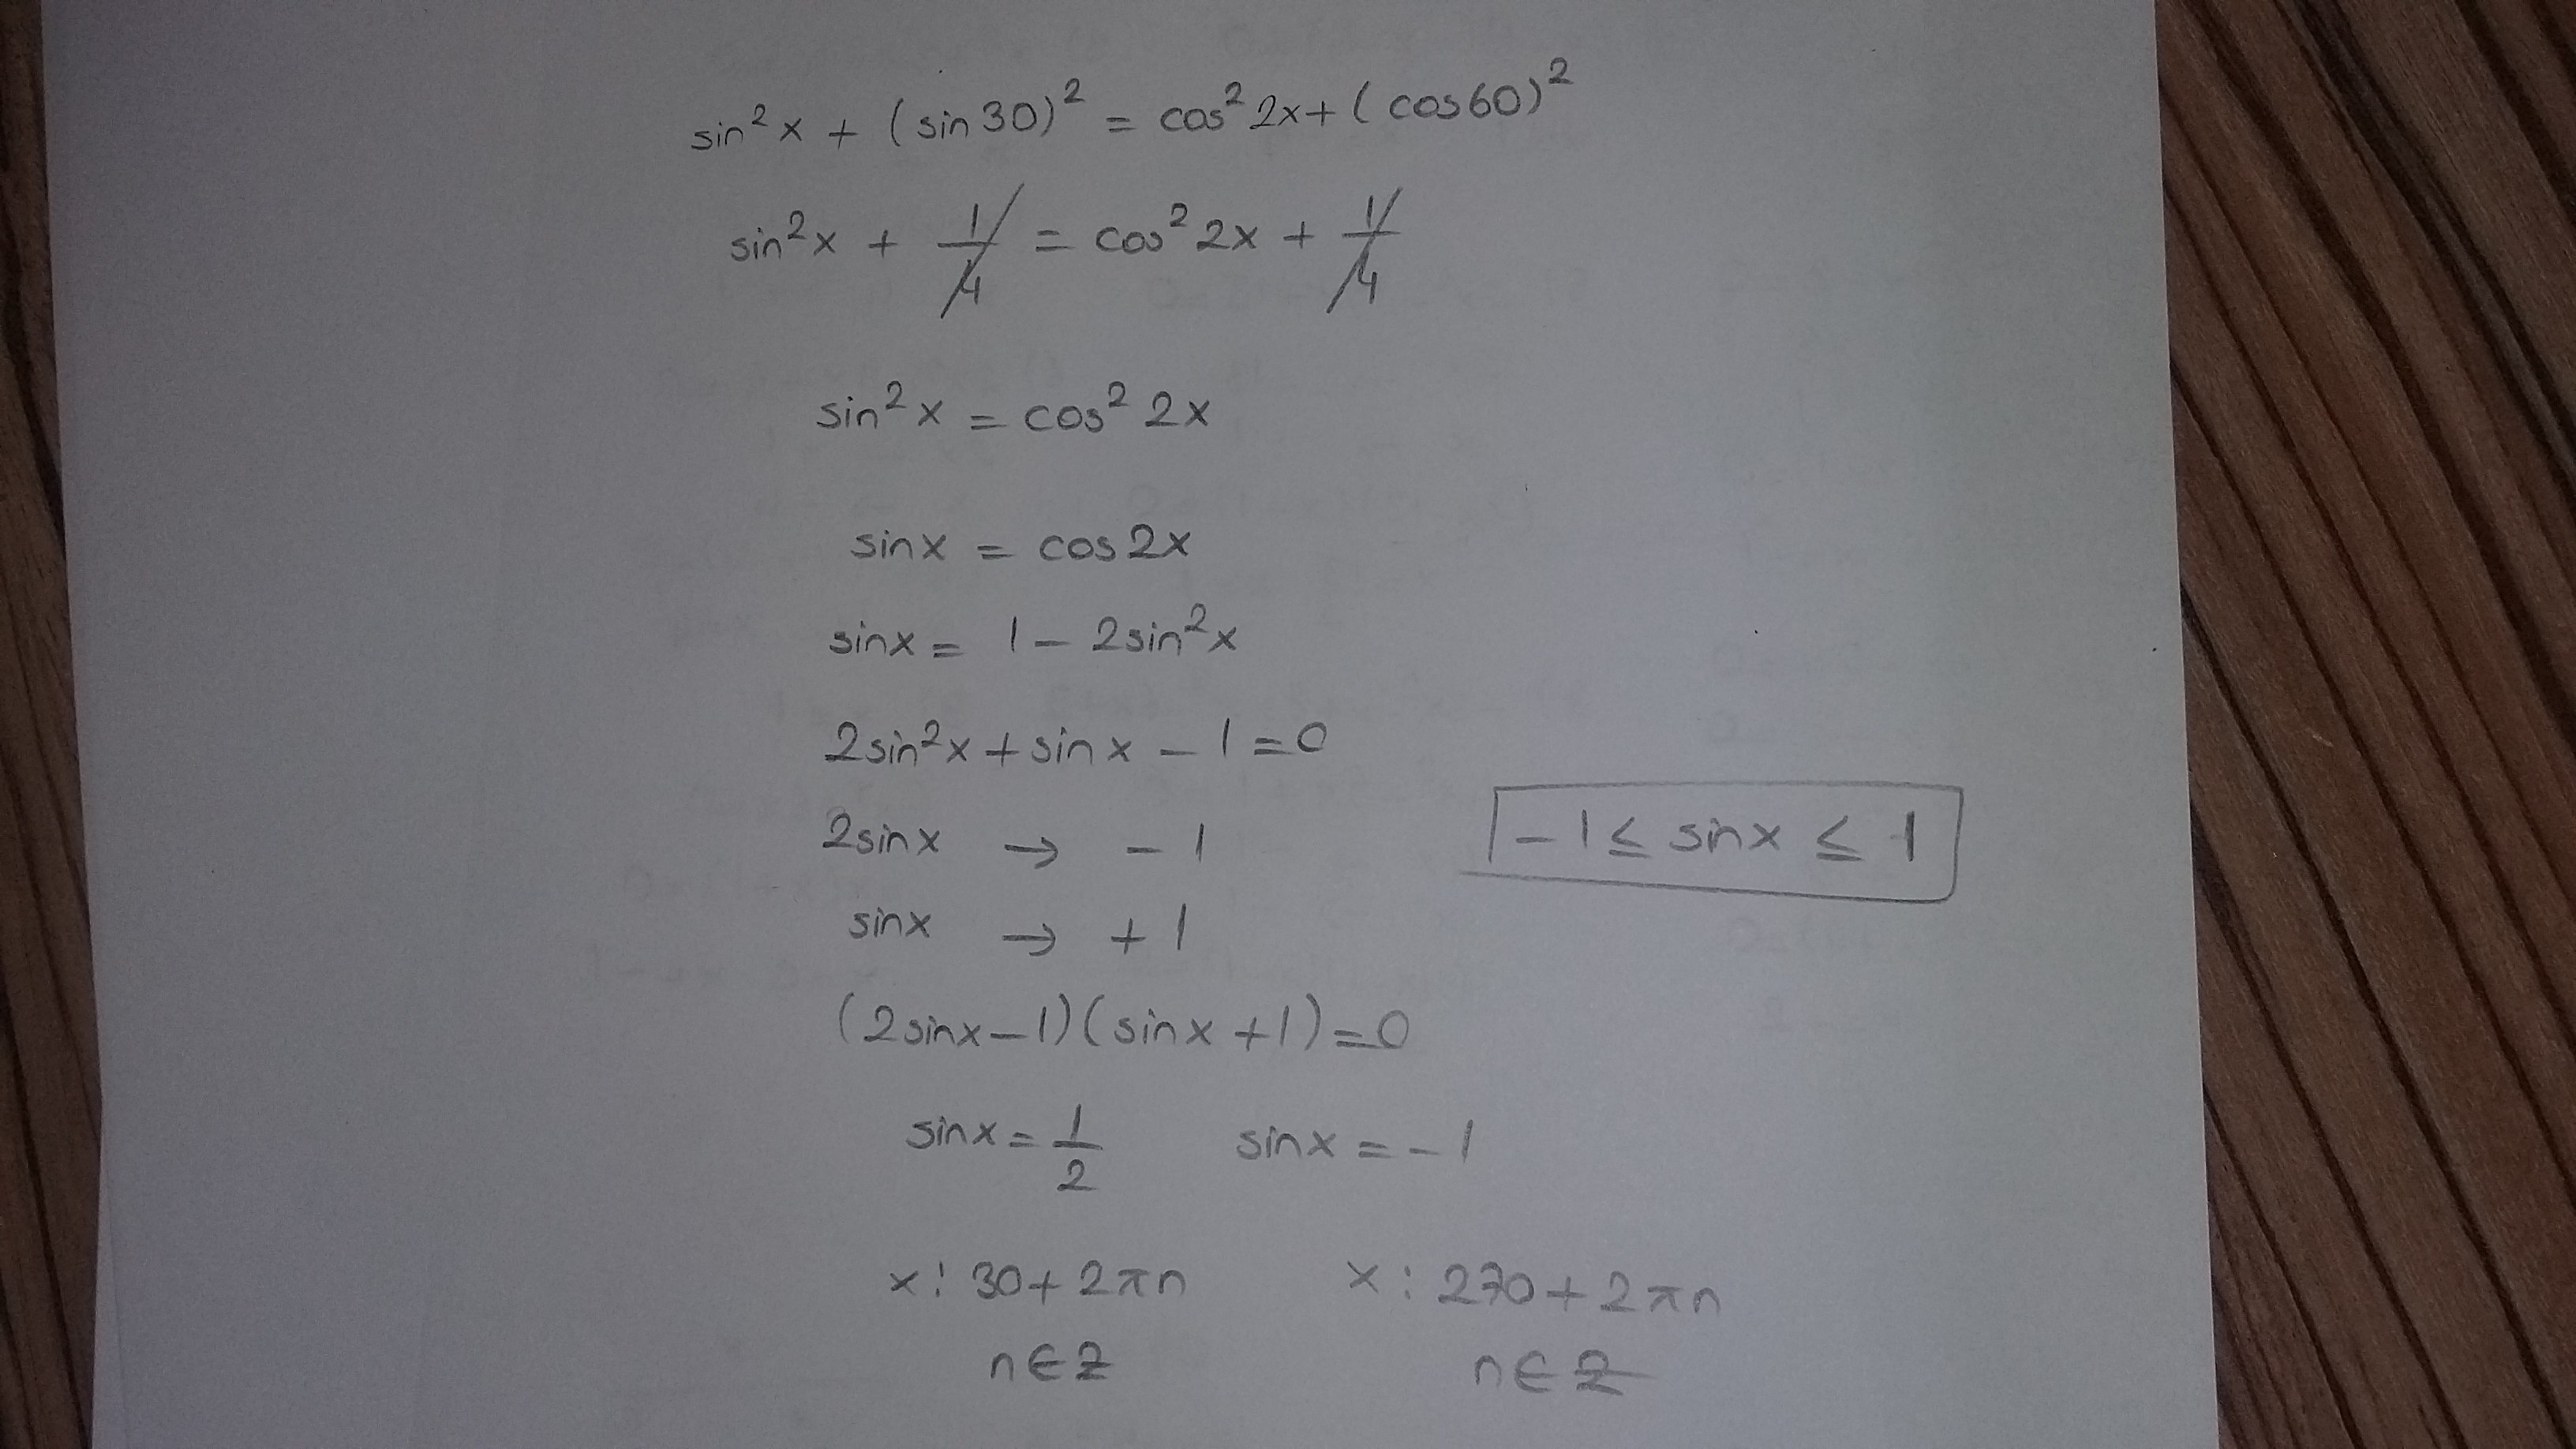 sin²x + (sin30)² = cos²2x + (cos60)²
sin²x + 1/4 = cos²2x + 1/4
sin²x = cos²2x
sinx = cos2x
sinx = 1 - 2sin²x
2sin²x + sinx - 1 = 0
2sinx → -1
-1 ≤ sinx ≤ 1
sinx → +1
(2sinx-1)(sinx+1)=0
sinx = 1/2 sinx = -1
x: 30+2πn x: 270+2πn
n∈Z n∈Z